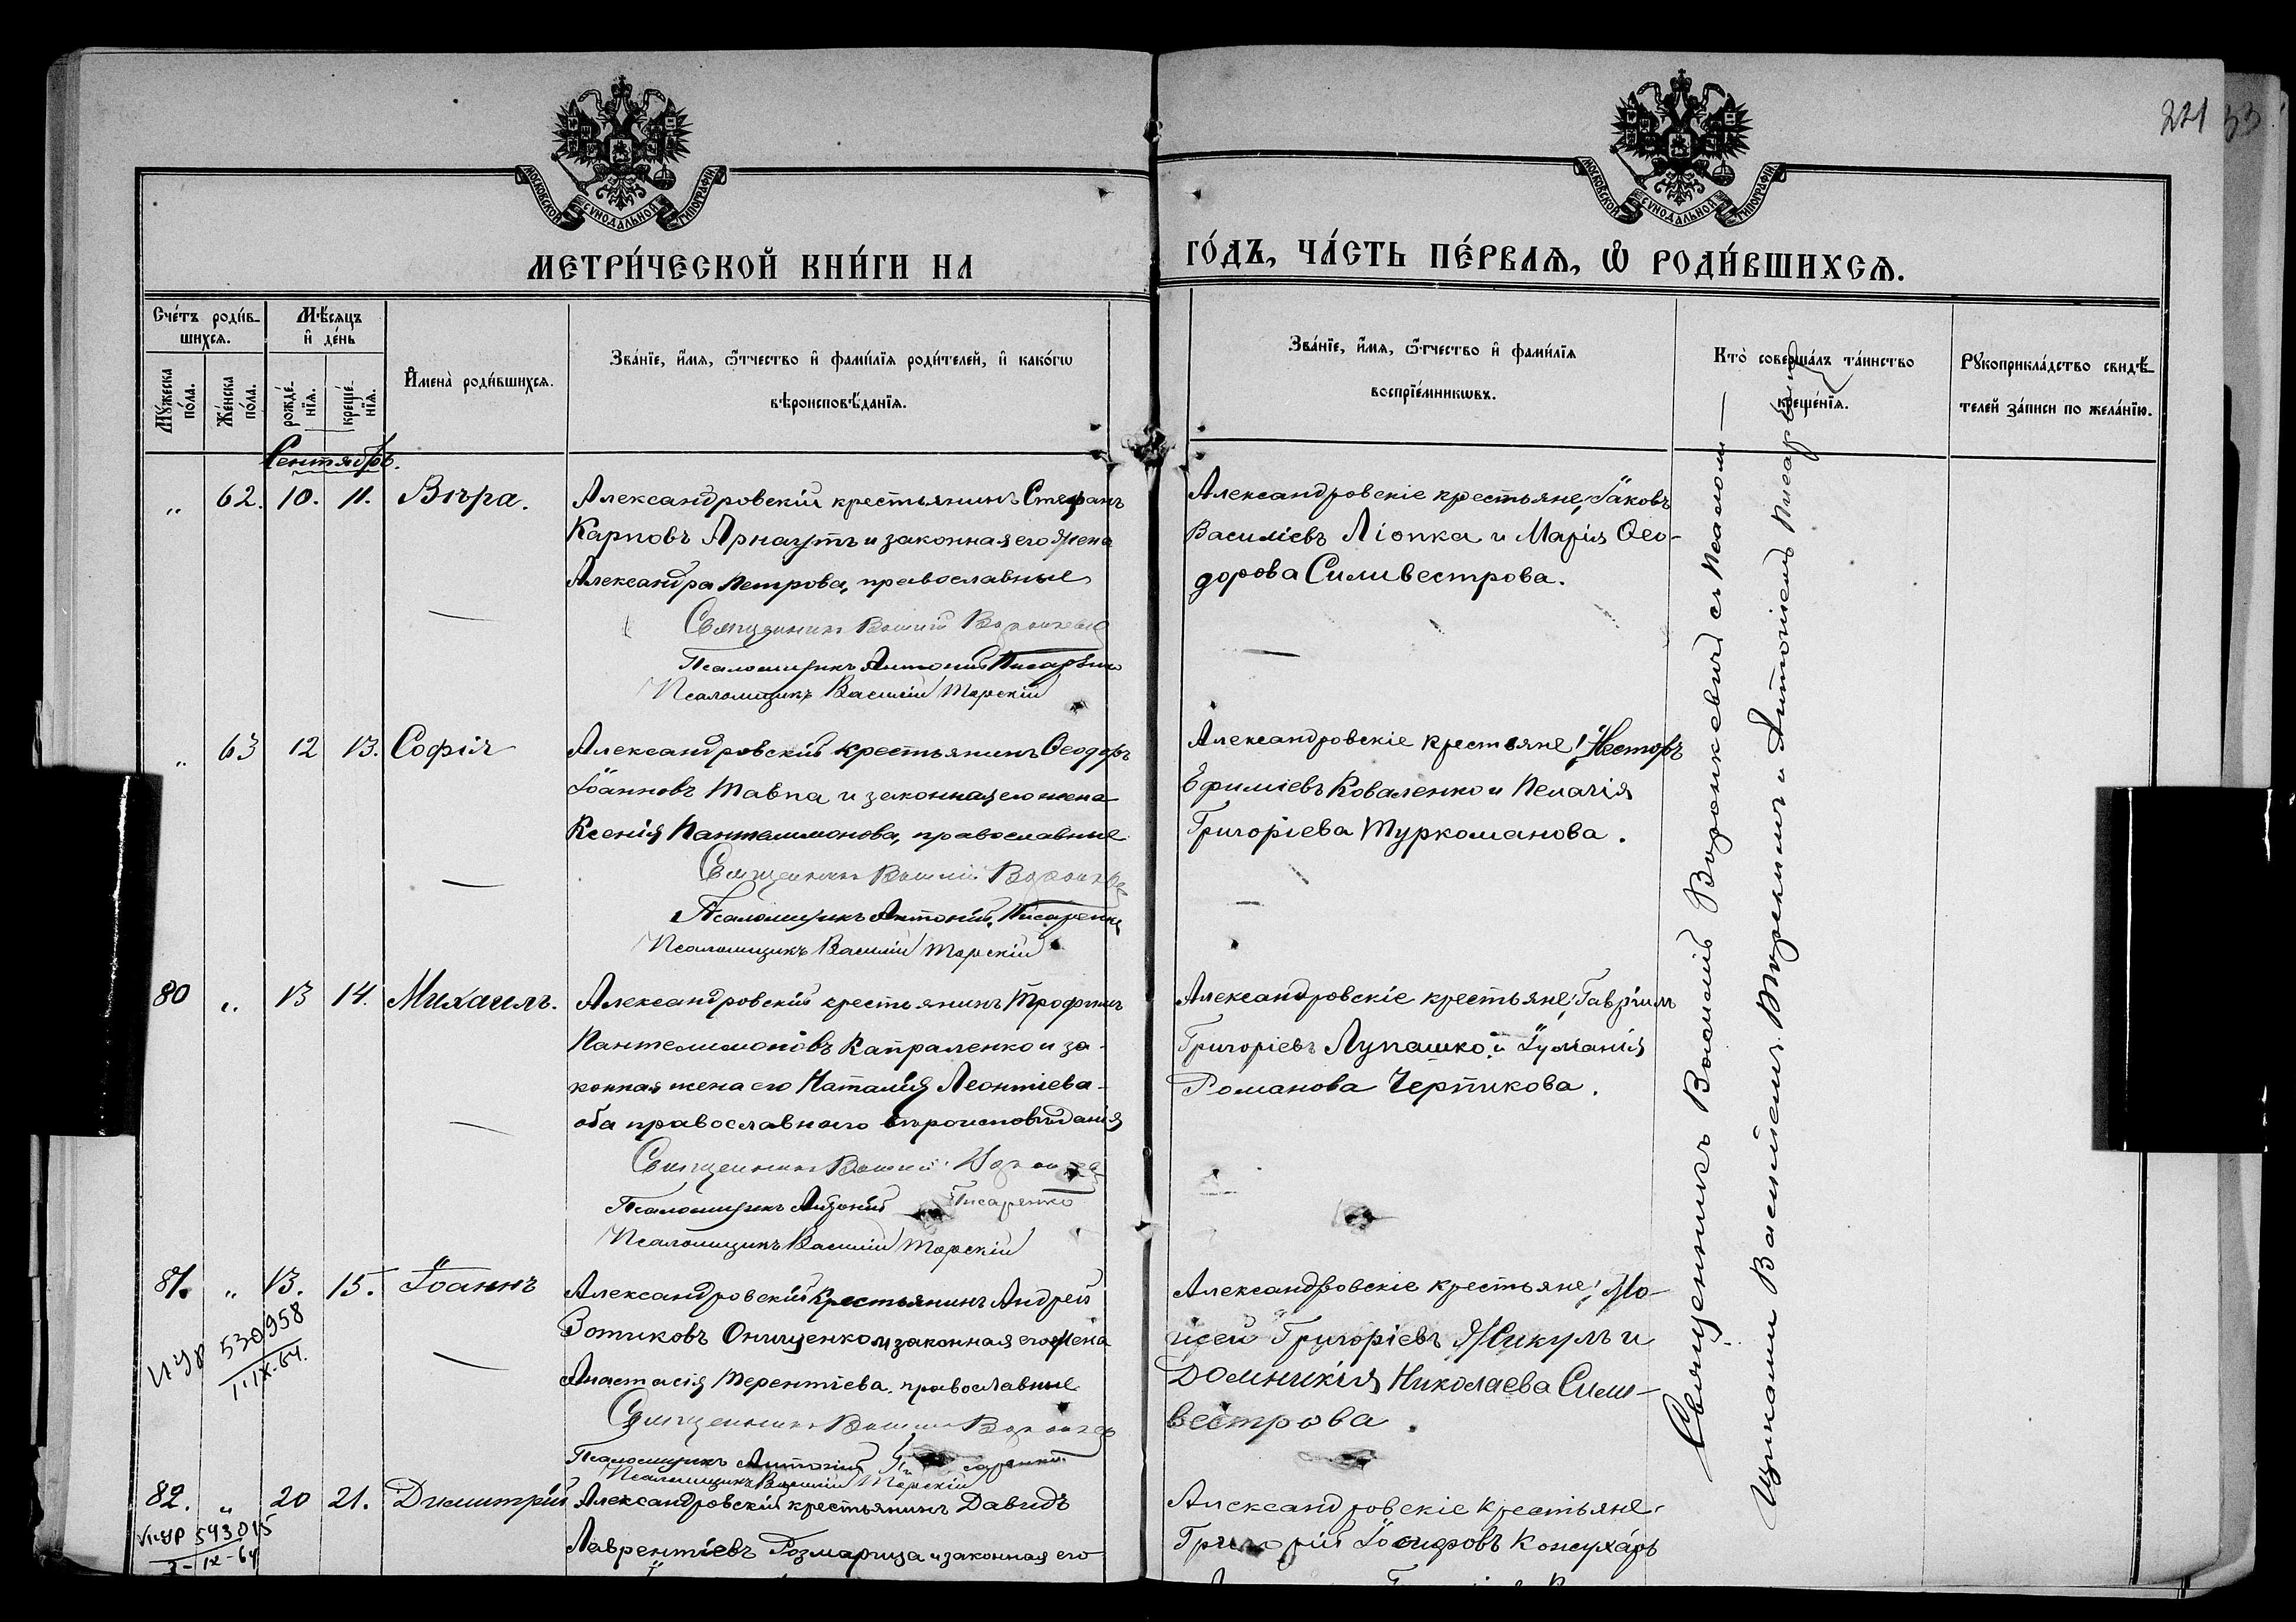 221
33
МОСКОВСКОЙ СѴНОДАЛЬНОЙ ТИПОГРАФІИ
МОСКОВСКОЙ СѴНОДАЛЬНОЙ ТИПОГРАФІИ
МЕТРИ́ЧЕСКОЙ КНИ́ГИ НА
ГО́ДЪ, ЧА́СТЬ ПЕ́РВАѦ, Ѡ҆ РОДИ́ВШИХСѦ.
Сче́тъ роди́в-
шихсѧ.
Мꙋ́жеска
по́ла.
Же́нска
по́ла.
Мѣ́сѧцъ
и҆ де́нь
рожде́-
нїѧ.
креще́-
нїѧ.
И҆мена̀ роди́вшихсѧ.
Зва́нїе, и҆́мѧ, ѻ҆́тчество и҆ фами́лїѧ роди́телей, и҆ како́гѡ
вѣроисповѣ́данїѧ.
Зва́нїе, и҆́мѧ, ѻ҆́тчество и҆ фами́лїѧ
воспрїе́мникѡвъ.
Кто̀ соверша́лъ та́инство
креще́нїѧ.
Рꙋкоприкла́дство свидѣ́-
телей за́писи по жела́нїю.
Сентябрь.
„ 62. 10. 11. Вѣра.
Александровскій крестьянинъ Стефанъ
Карповъ Арнаутъ и законная его жена
Александра Петрова, православные
Священникъ Василій
Псаломщикъ Антоній Писаренко
Псаломщикъ Василій Торскій
Александровскіе крестьяне, Іаковъ
Василіевъ Ліопка и Марія Ѳео-
дорова Силивестрова.
„ 63 12 13. Софія
Александровскій крестьянинъ Ѳеодоръ
Іоанновъ Тавпа и законная его жена
Ксенія Пантелимонова, православные
Священникъ Василій
Псаломщикъ Антоній Писаренко
Псаломщикъ Василій Торскій
Александровскіе крестьяне: Несторъ
Ефиміевъ Коваленко и Пелагія
Григоріева Туркоманова.
80 „ 13 14. Михаилъ.
Александровскій крестьянинъ Трофимъ
Пантелимоновъ Капраленко и за-
конная жена его Наталія Леонтіева-
оба православнаго вѣроисповѣданія
Священникъ Василій
Псаломщикъ Антоній Писаренко
Псаломщикъ Василій Торскій
Александровскіе крестьяне: Гавріилъ
Григоріевъ Лупашко и Іуліанія
Романова Черпикова.
81. „ 13. 15. Іоаннъ
530958
1-IX-64.
Александровскій крестьянинъ Андрей
Зотиковъ Онищенко и законная его жена
Анастасія Терентіева, православные
Священникъ Василій
Псаломщикъ Антоній
Псаломщикъ Василій Торскій
Александровскіе крестьяне: Мо-
исей Григоріевъ Жикулъ и
Домникія Николаева Сили-
вестрова.
82. „ 20 21. Димитрій
543015
3-IX-64
Александровскій крестьянинъ Давидъ
Лаврентіевъ Розмарица и законная его
Александровскіе крестьяне:
Григорій Іосифовъ Консухаръ
Священникъ Василій с псалом-
щиками Василіемъ Торскимъ и Антоніемъ Писаренко